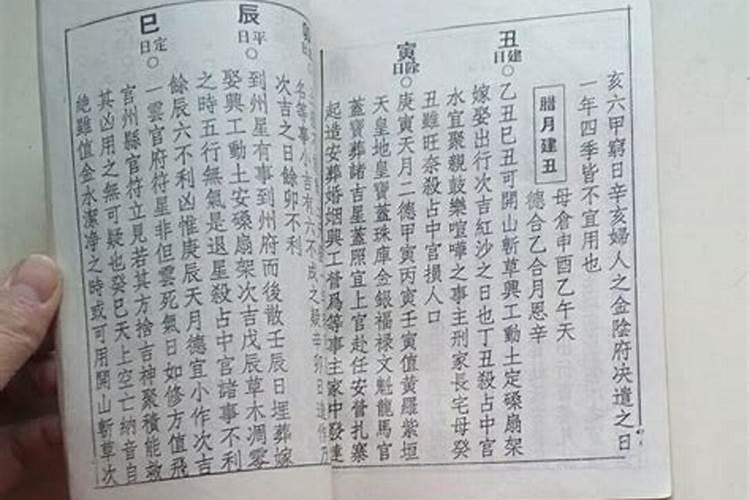 亥六甲窮日辛亥婦人之金陰府决遣之日
一年四季皆不宜用也
臘月建丑
母倉申酉乙午天
德合乙合月恩辛
丑建日
○乙丑巳丑可開山斬草興工動土定磉扇架
嫁娶出行次吉紅沙之日也丁丑殺占中宮
水宜聚親鼓樂喧嘩之事主刑家長宅母癸
丑雖旺奈殺占中宮損人口
寅除日
○庚寅天月二德甲寅丙寅壬寅值黄羅紫垣
天皇地皇寶蓋珠庫金銀福禄文魁龍馬官
蓋寶葬諸吉星蓋照宜上官赴任安營扎寨
起造安葬婚姻興工營爲等事主家中發達
名等事小吉有六不成之疑辛卯日
次吉之日餘卯不利
辰平日
○到州星有事到州府而後散壬辰日埋葬嫁
娶興工動土安磉扇架次吉戊辰草木凋零
之時五行無氣是退星殺占中宮諸事不利
餘辰六不利凶惟庚辰天月德宜小作次吉
巳定日
○一雲官府符星非但雲死氣日如修方值飛
官州縣官符立見若其方捨吉神聚積能敵
其凶用之無可疑也癸巳天上空亡納音自
絶雖值金水潔净之時或可用開山斬草次